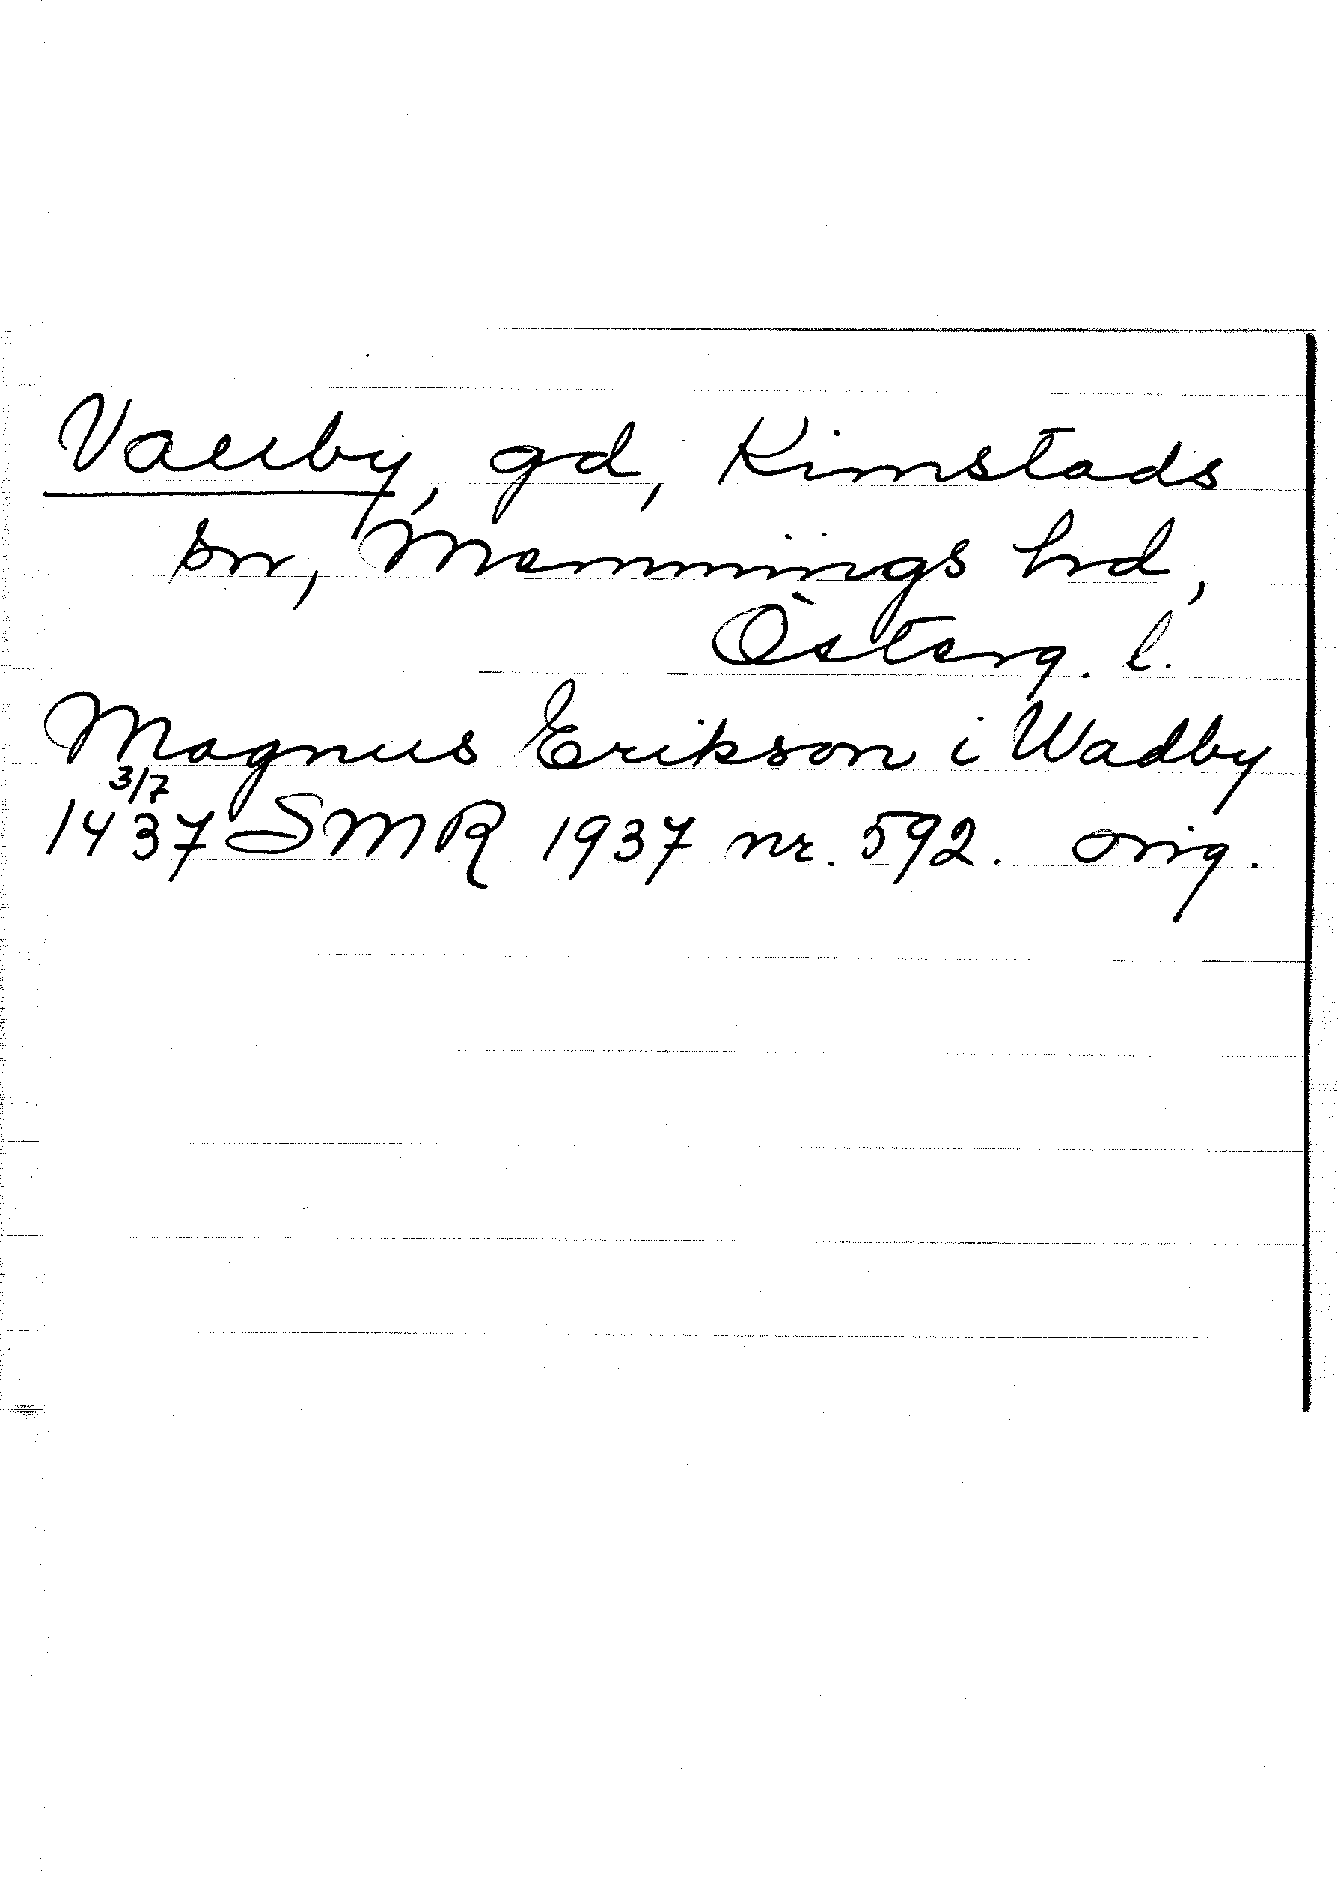 gd, Kimstads
sn, Memmings hrd,
Österg. l.
Magnus Erikson i Wadby
3/7
1437 SMR 1937 nr. 592. orig.